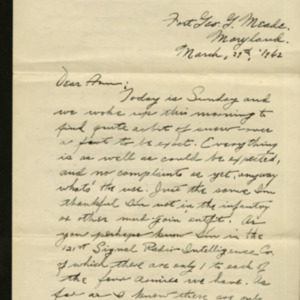 Fort Geo. G. Meade.
Maryland.
March, 29th, 1942
Dear Ann:
Today is Sunday and
we woke up this morning to
find quite a bit of snow over
a foot to be exact. Everything
is as well as could be expected,
and no complaints as yet, anyway
what's the use. Just the same I'm
thankful I'm not in the infantry
or other mud join' outfit. As
you perhaps know I'm in the
121st Signal Radio Intelligence Co.
of which there are only 1 to each of
the few armies we have. As
far as I know there are only